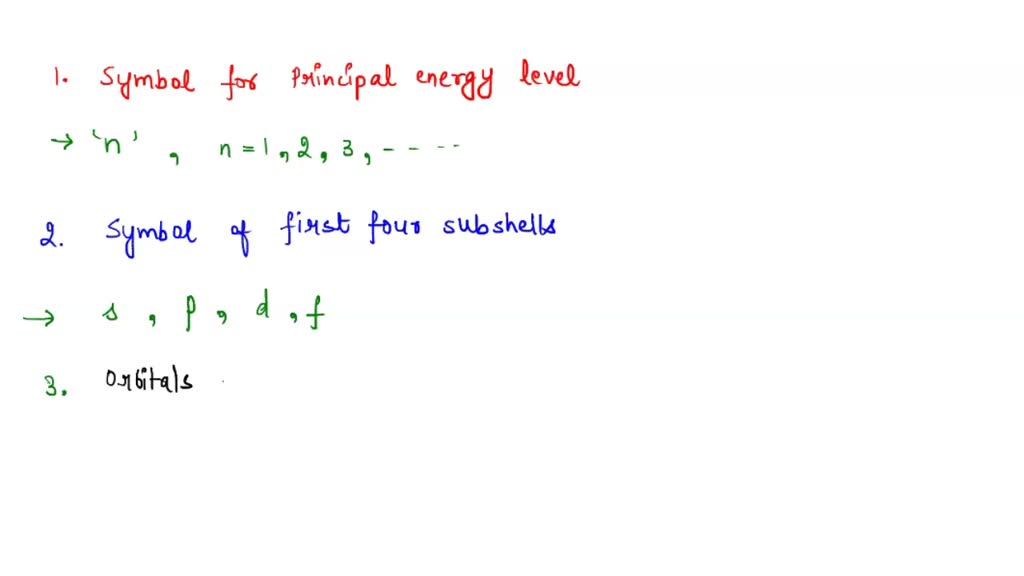 1. Symbol for Principal energy level
→ 'n' , n = 1, 2, 3, - - - -
2. Symbol of first four subshells
→ s, p, d, f
3. Orbitals